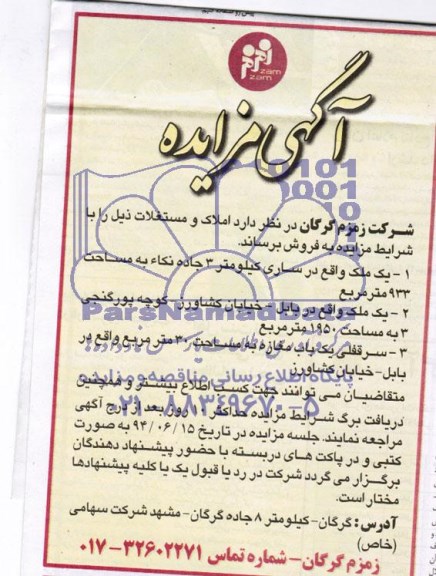 zam zam
آگهی مزایده
شرکت زمزم گرگان در نظر دارد املاک و مستغلات ذیل را با
شرایط مزایده به فروش برساند.
۱ - یک ملک واقع در ساری کیلومتر ۳ جاده نکاء به مساحت
۹۳۳ مترمربع
۲ - یک ملک واقع در بابل - خیابان کشاورز - کوچه پورگنجی
۳ به مساحت ۱۹۵۰ مترمربع
۳ - سرقفلی یک باب مغازه به مساحت ۳۰ متر مربع واقع در
بابل - خیابان کشاورز
متقاضیان می توانند جهت کسب اطلاع بیشتر و همچنین
دریافت برگ شرایط مزایده حداکثر ۱۰ روز بعد از درج آگهی
مراجعه نمایند. جلسه مزایده در تاریخ ۹۴/۰۶/۱۵ به صورت
کتبی و در پاکت های دربسته با حضور پیشنهاد دهندگان
برگزار می گردد شرکت در رد یا قبول یک یا کلیه پیشنهادها
مختار است.
آدرس: گرگان - کیلومتر ۸ جاده گرگان - مشهد شرکت سهامی
(خاص)
زمزم گرگان - شماره تماس ۳۲۶۰۲۲۷۱-۰۱۷
ParsNamadData
پایگاه اطلاع رسانی مناقصه و مزایده
۰۲۱-۸۸۳۴۹۶۷۰-۵